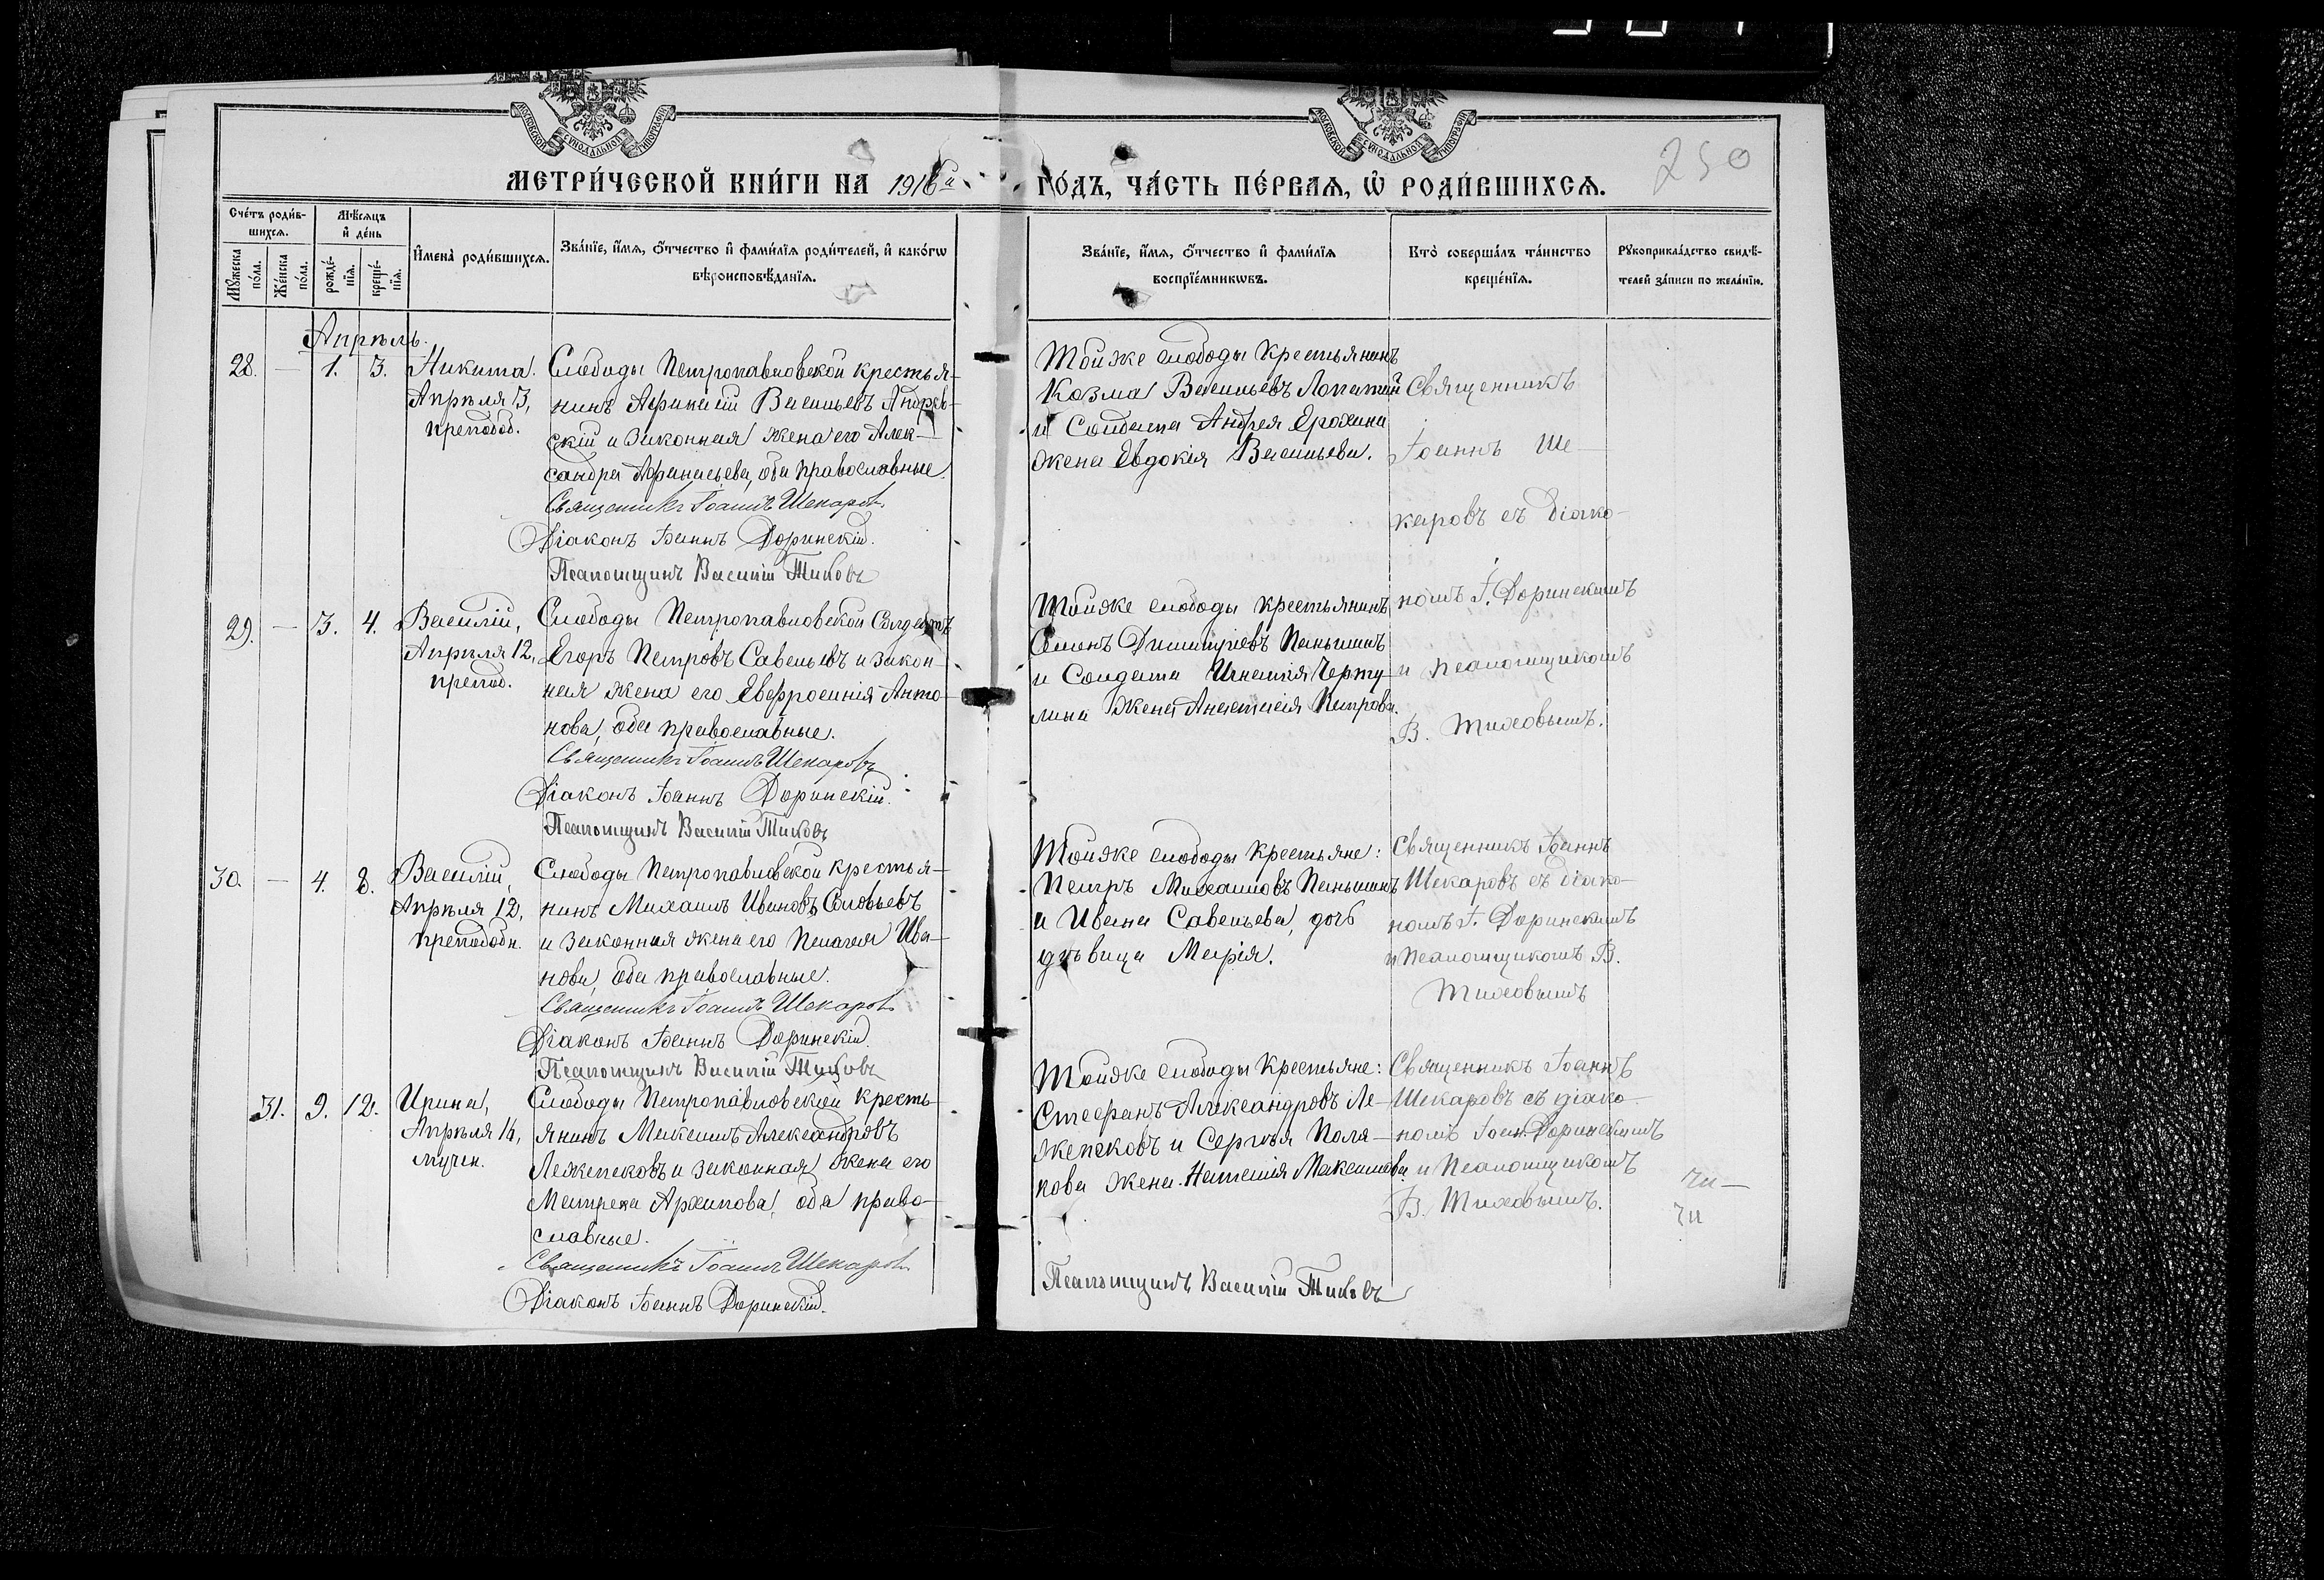 МОСКОВСКОЙ СѴНОДАЛЬНОЙ ТИПОГРАФІИ
МОСКОВСКОЙ СѴНОДАЛЬНОЙ ТИПОГРАФІИ
250
МЕТРИ́ЧЕСКОЙ КНИ́ГИ НА 1916й
ГО́ДЪ, ЧА́СТЬ ПЕ́РВАЯ, Ѡ҆ РОДИ́ВШИХСЯ.
Сче́тъ роди́в-
шихся.
Мꙋ́жеска по́ла.
Же́нска по́ла.
Мѣ́сяцъ
и҆ де́нь
рожде́-
нїя.
креще́-
нїя.
И҆мена̀ роди́вшихся.
Зва́нїе, и҆́мя, ѻ҆́тчество и҆ фами́лїя роди́телей, и҆ како́гѡ
вѣроисповѣ́данїя.
Зва́нїе, и҆́мя, ѻ҆́тчество и҆ фами́лїя
воспрїе́мникѡвъ.
Кто̀ соверша́лъ та́инство
креще́нїя.
Рꙋкоприкла́дство свидѣ́-
телей за́писи по жела́нїю.
Апрѣль.
28. — 1. 3.
Никита.
Апрѣля 3,
преподоб.
Слободы Петропавловской крестья-
нинъ Афанасій Васильевъ Андреев-
скій и законная жена его Алек-
сандра Афанасьева, оба православные.
Священникъ Іоаннъ Шекаров
Діаконъ Іоаннъ Доринскій.
Псаломщикъ Василій Тиховъ
Тойже слободы крестьянинъ
Козма Васильевъ Лопатин
и Солдата Андрея Ерохина
жена Евдокія Васильева.
Священникъ
Іоаннъ Ше-
каровъ съ діако-
номъ І. Доринскимъ
и псаломщикомъ
В. Тиховымъ.
29. — 3. 4.
Василій,
Апрѣля 12,
препод.
Слободы Петропавловской Солдатъ
Егоръ Петровъ Савельевъ и закон-
ная жена его Евфросинія Анто-
нова, оба православные.
Священникъ Іоаннъ Шекаровъ
Діаконъ Іоаннъ Доринскій.
Псаломщикъ Василій Тиховъ
Тойже слободы крестьянинъ
Симонъ Димитріевъ Паньшинъ
и Солдата Игнатія Черту-
лина жена Анастасія Петрова.
30. — 4. 8.
Василій,
Апрѣля 12,
преподобн.
Слободы Петропавловской крестья-
нинъ Михаилъ Ивановъ Соловьевъ
и законная жена его Пелагея Ива-
нова, оба православные.
Священникъ Іоаннъ Шекаров
Діаконъ Іоаннъ Доринскій.
Псаломщикъ Василій Тиховъ
Тойже слободы Крестьяне:
Петръ Михаиловъ Паньшинъ
и Ивана Савельева, дочь
дѣвица Марія.
Священникъ Іоаннъ
Шекаровъ съ діако-
номъ І. Доринскимъ
и Псаломщикомъ В.
Тиховымъ
31. 9. 12.
Ирина,
Апрѣля 16,
мучен.
Слободы Петропавловской кресть-
янинъ Максимъ Александровъ
Лежепековъ и законная жена его
Матрена Архипова, оба право-
славные.
Священникъ Іоаннъ Шекаров
Діаконъ Іоаннъ Доринскій.
Тойже слободы Крестьяне:
Стефанъ Александровъ Ле-
жепековъ и Сергѣя Поля-
кова жена Наталія Максимова.
Священникъ Іоаннъ
Шекаровъ съ діако-
номъ Іоан. Доринскимъ
и Псаломщикомъ
В. Тиховымъ.
Псаломщикъ Василій Тиховъ